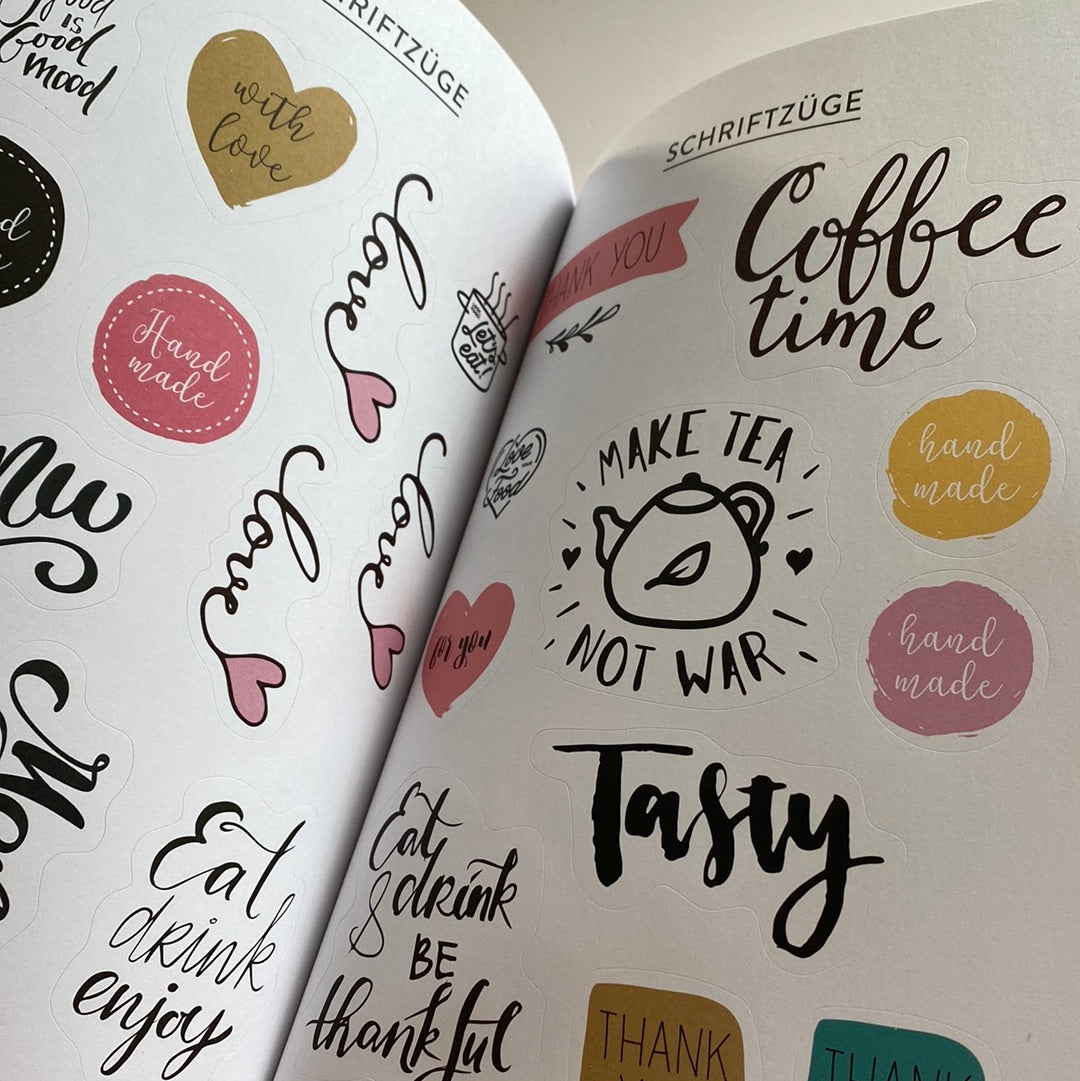 SCHRIFTZÜGE
IS
Good
mood
with
love
love
Hand
made
Let's
eat!
love
love
Eat
drink
enjoy
SCHRIFTZÜGE
THANK YOU
Coffee
time
Love
food
MAKE TEA
NOT WAR
hand
made
for you
hand
made
Tasty
Eat
& drink
BE
thankful
THANK
THANK